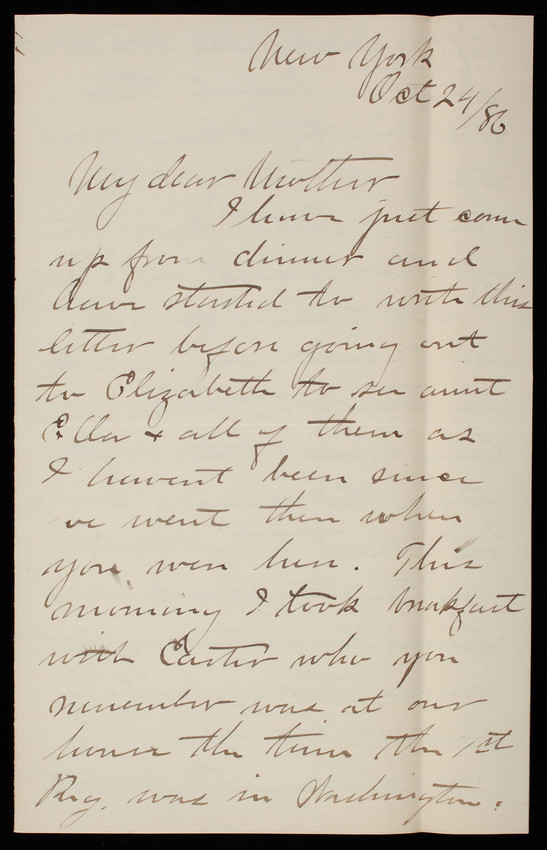 New York
Oct 24/86
My dear Mother
I have just come
up from dinner and
have started to write this
letter before going out
to Elizabeth to see aunt
Ella & all of them as
I havent been since
we went then when
you were here. This
morning I took breakfast
with Carter who you
remember was at our
house the time the 1st
Reg. was in Washington.